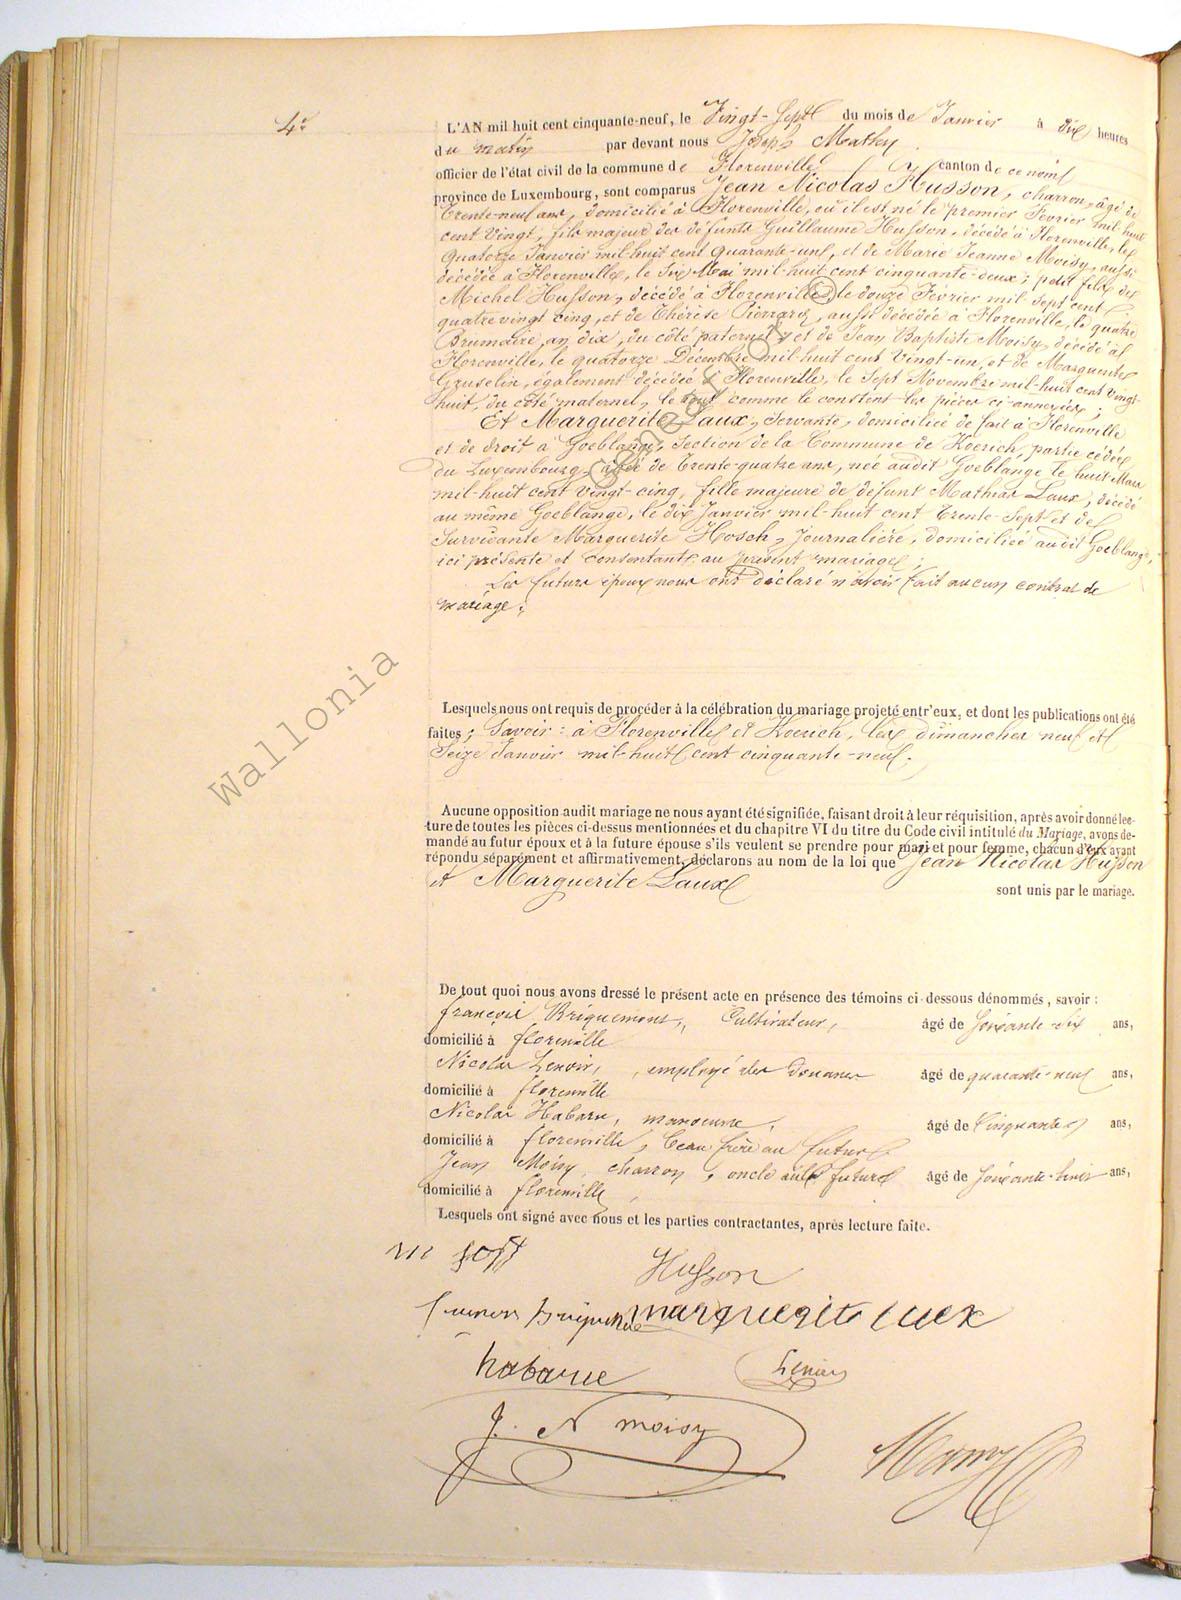 4e
L'AN mil huit cent cinquante-neuf, le Vingt-Sept du mois de Janvier à dix heures
du matin par devant nous Joseph Mathey
officier de l'état civil de la commune de Florenville canton de ce nom
province de Luxembourg, sont comparus Jean Nicolas Husson, charron, âgé de
Trente-neuf ans, domicilié à Florenville, où il est né le premier Février mil-huit
cent Vingt, fils majeur des défunts Guillaume Husson, décédé à Florenville, le
quatorze Janvier mil-huit cent quarante-un, et de Marie Jeanne Moisy, aussi
décédée à Florenville, le Six Mai mil-huit cent cinquante-deux; petit fils de
Michel Husson, décédé à Florenville, le douze Février mil sept cent
quatre vingt cinq, et de Thérèse Pierrard, aussi décédée à Florenville, le quatre
Brumaire, an dix, du côté paternel, et de Jean Baptiste Moisy, décédé à
Florenville, le quatorze Décembre mil-huit cent Vingt-un, et de Marguerite
Gruselin, également décédée à Florenville, le Sept Novembre mil-huit cent vingt-
huit, du côté maternel, le tout comme le constent les pièces ci-annexées;
Et Marguerite Laux, Servante, domiciliée de fait à Florenville
et de droit à Goeblange, Section de la Commune de Koerich, partie cédée
du Luxembourg, âgée de Trente-quatre ans, née audit Goeblange le huit Mars
mil-huit cent vingt-cinq, fille majeure de défunt Mathias Laux, décédé
au même Goeblange, le dix Janvier mil-huit cent Trente-Sept et de
Survivante Marguerite Hosch, Journalière, domiciliée audit Goeblange,
ici présente et consentante au présent mariage;
Les futurs époux nous ont déclaré n'avoir fait aucun contrat de
mariage;
Wallonia
Lesquels nous ont requis de procéder à la célébration du mariage projeté entr'eux, et dont les publications ont été
faites; Savoir: à Florenville et Koerich, les dimanches neuf et
Seize Janvier mil-huit cent cinquante-neuf.
Aucune opposition audit mariage ne nous ayant été signifiée, faisant droit à leur réquisition, après avoir donné lec-
ture de toutes les pièces ci-dessus mentionnées et du chapitre VI du titre du Code civil intitulé du Mariage, avons de-
mandé au futur époux et à la future épouse s'ils veulent se prendre pour mari et pour femme, chacun d'eux ayant
répondu séparément et affirmativement, déclarons au nom de la loi que Jean Nicolas Husson
et Marguerite Laux sont unis par le mariage.
De tout quoi nous avons dressé le présent acte en présence des témoins ci-dessous dénommés, savoir:
françois Briquemont, Cultivateur, âgé de soixante-six ans,
domicilié à florenville
Nicolas Lenoir, employé des douanes âgé de quarante-neuf ans,
domicilié à florenville
Nicolas Habaru, manoeuvre, âgé de Cinquante ans,
domicilié à florenville, beau frère au futur
Jean Moisy, charron, oncle au futur âgé de soixante-trois ans,
domicilié à florenville,
Lesquels ont signé avec nous et les parties contractantes, après lecture faite.
Husson
marguerite luex
habarue
Lenoir
J. N moisy